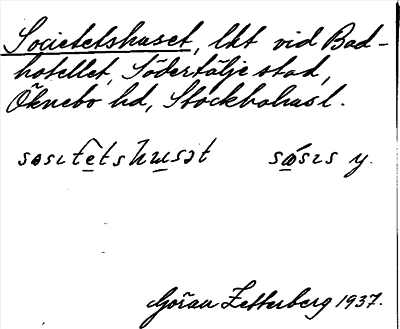 Societetshuset, lkt vid Bad-
hotellet, Södertälje stad,
Öknebo hd, Stockholms l.
sɵsıtētshusət sɵsıs y.
Göran Zetterberg 1937.